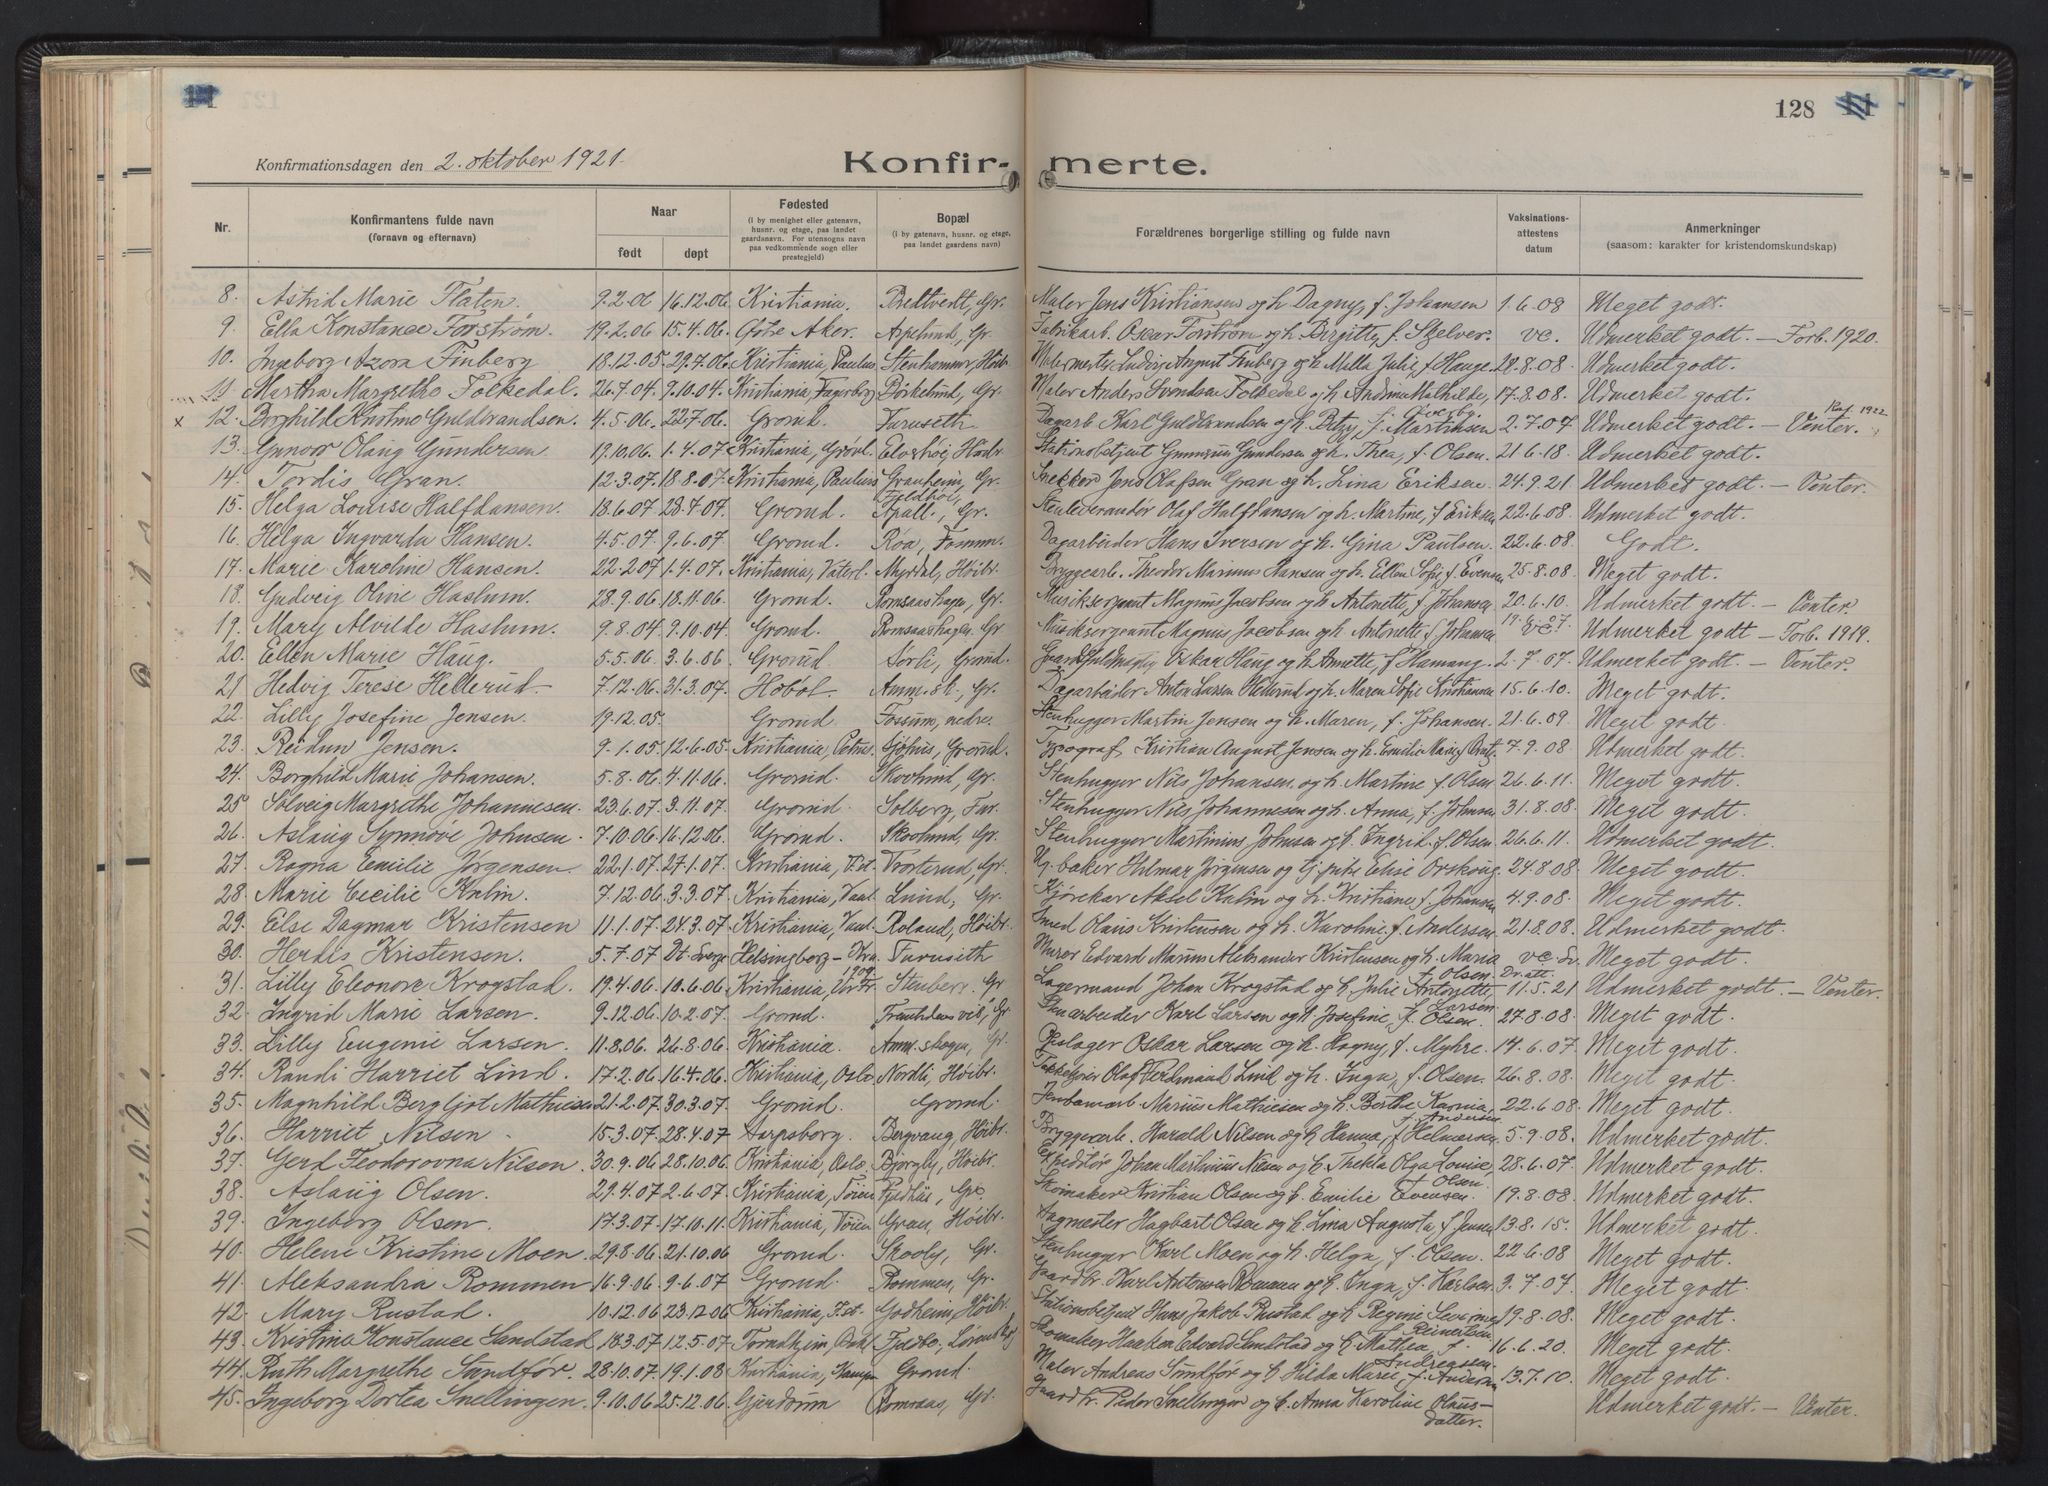 128
Konfirmationsdagen den 2. oktober 1921.
Konfir- merte.
Nr. Konfirmantens fulde navn (fornavn og efternavn) Naar født døpt Fødested (i by menighet eller gatenavn, husnr. og etage, paa landet gaardsnavn. For utensogns navn paa vedkommende sogn eller prestegjeld) Bopæl (i by gatenavn, husnr. og etage, paa landet gaardens navn) Forældrenes borgerlige stilling og fulde navn Vaksinationsattestens datum Anmerkninger (saasom: karakter for kristendomskundskap)
8. Astrid Marie Flaten. 9.2.06 16.12.06. Kristiania. Bredtvedt, Gr. Maler Jens Kristiansen og h. Dagny, f. Johansen 1.6.08 Meget godt.
9. Ella Konstance Forstrøm. 19.2.06 15.4.06. Østre Aker. Gr. Fabrikarb. Oskar Forstrøm og h. Birgitte, f. Skelver. vc. Udmerket godt. – Forb. 1920.
10. Ingeborg Azora Finberg 18.12.05. 29.7.06. Kristiania, Paulus Stenhammer, Höibr. Malermester Ludvig August Finberg og h. Milla Julie, f. Hauge 28.8.08. Udmerket godt.
11. Martha Margrethe Folkedal. 26.7.04. 9.10.04. Kristiania, Fagerborg Birkelund, Gr. Maler Anders Svendsen Folkedal og h. Andrine Mathilde, 17.8.08. Udmerket godt.
x 12. Borghild Kristine Guldbrandsen. 4.5.06. 22.7.06. Grorud. Furuseth Dagarb. Karl Guldbrandsen og h. Betzy, f. Martinsen 2.7.07 Udmerket godt. – Venter. 1922
13. Gunvor Olaug Gundersen 19.10.06. 1.4.07. Kristiania, Grønl. Elvehöi, Höibr. Stationsbetjent Gunnerius Gundersen og h. Thea, f. Olsen. 21.6.18. Udmerket godt.
14. Tordis Gran. 12.3.07. 18.8.07. Kristiania, Paulus Granheim, Gr. Snekker Jens Olafsen Gran og h. Lina Eriksen 24.9.21 Udmerket godt. – Venter.
15. Helga Louise Halfdansen. 18.6.07 28.7.07. Grorud. Fjeldhöi, Gr. Stenleverandør Olaf Halfdansen og h. Martine, f. Eriksen 22.6.08. Udmerket godt.
16. Helga Ingvarda Hansen. 4.5.07. 9.6.07. Grorud. Röa, Fossum. Dagarbeider Hans Iversen og h. Gina Paulsen. 22.6.08. Godt.
17. Marie Karoline Hansen. 22.2.07 1.4.07. Kristiania, Vaterl. Myrdal, Höibr. Bryggearb. Theodor Marinus Hansen og h. Ellen Sofie, f. Evensen 25.8.08. Meget godt.
18. Gudveig Olive Haslum. 28.9.06 18.11.06. Grorud. Romsaashagen, Gr. Musiksergeant Magnus Jacobsen og h. Antonette, f. Johansen 20.6.10. Udmerket godt. – Venter.
19. Mary Alvilde Haslum. 9.8.04. 9.10.04. Grorud. Romsaashagen. Gr Musiksergeant Magnus Jacobsen og h. Antonette f. Johansen vc. Udmerket godt – Forb. 1919.
20. Ellen Marie Haug. 5.5.06. 3.6.06 Grorud. Sörli, Grorud. Oskar Haug og h. Annette, f. Hamang. 2.7.07. Udmerket godt. – Venter.
21 Hedvig Terese Hellerud. 7.12.06. 31.3.07. Hobøl. Amm.sk., Gr. Dagarbeider Anton Larsen Hellerud og h. Maren Sofie Kristiansen 15.6.10. Meget godt.
22. Lilly Josefine Jensen. 19.12.05. Grorud Fossum, nedre. Stenhugger Martin Jensen og h. Maren, f. Johansen. 21.6.09. Meget godt
23. Reidun Jensen. 9.1.05 12.6.05. Kristiania, Petrus. Grorud. Typograf Kristian August Jensen og h. Emilie Marie 7.9.08. Udmerket godt.
24. Borghild Marie Johansen. 5.8.06 4.11.06. Grorud. Skovlund, Gr. Stenhugger Nils Johansen og h. Martine f. Olsen 26.6.11. Meget godt.
25 Solveig Margrethe Johannesen. 23.6.07 3.11.07. Grorud. Solberg, Fur. Stenhugger Nils Johannesen og h. Anna, f. Johnsen 31.8.08. Meget godt.
26. Aslaug Synnöve Johnsen. 7.10.06 16.12.06. Grorud. Skovlund, Gr. Stenhugger Martinius Johnsen og h. Ingrid. f. Olsen 26.6.11. Udmerket godt.
27. Ragna Emilie Jörgensen. 22.1.07. 27.1.07. Kristiania, Tvæterud, Gr. baker Hilmar Jörgensen og Elise Orskoug 24.8.08. Meget godt.
28. Marie Cecilie Kalin. 7.12.06 3.3.07. Kristiania, Vaal. Lund, Gr. Kjörekar Aksel Kalin og h. Kristiane f. Johansen 4.9.08. Meget godt.
29. Else Dagmar Kristensen 11.1.07. 24.3.07. Kristiania, Vaal. Roland, Höibr. Smed Olaus Kristensen og h. Karoline, f. Andersen 21.8.08. Udmerket godt.
30. Herdis Kristensen. 5.7.07 Dt. Sverge Helsingborg – Kra 1909. Furuseth Murer Edvard Marius Aleksander Kristensen og h. Maria f. Olsen. vc. Meget godt.
31. Lilly Eleonore Krogstad. 19.4.06 10.6.06. Kristiania, Vor Fr. Stenberg. Gr Lagermand Johan Krogstad og h. Julie Antonette, f. Larsen Dr. att. 11.5.21 Udmerket godt. – Venter.
32. Ingrid Marie Larsen. 9.12.06. 10.2.07. Grorud. Gr Stenarbeider Karl Larsen og h. Josefine, f. Olsen. 27.8.08. Meget godt.
33. Lilly Eugenie Larsen. 11.8.06. 26.8.06. Kristiania. Gr. Oskar Larsen og h. Dagny, f. Myhre. 14.6.07. Meget godt.
34. Randi Harriet Lind. 17.2.06 16.4.06. Kristiania, Oslo Nordli, Höibr. Olaf Ferdinand Lind og h. Inga, f. Olsen. 26.8.08. Meget godt.
35. Magnhild Bergljot Mathiesen 21.2.07. 30.3.07. Grorud. Grorud. Jernbanearb. Marius Mathiesen og h. Berthe Karnia, f. Andersen 22.6.08. Meget godt.
36. Harriet Nilsen. 15.3.07. 28.4.07 Sarpsborg. Bergvang, Höibr. Bryggearb. Harald Nilsen og h. Hanna, f. Helmersen 5.9.08. Udmerket godt.
37. Gerd Feodorovna Nilsen. 30.9.06 28.10.06. Kristiania, Oslo. Bjorgly, Höibr. Ekspeditör Johan Martinius Nilsen og h. Thekla Olga Louise, f. Olsen. 28.6.07. Udmerket godt.
38. Aslaug Olsen. 29.4.07 2.6.07. Kristiania, Töien Gr. Skomaker Kristian Olsen og h. Emilie Evensen. 19.8.08. Udmerket godt.
39. Ingeborg Olsen. 17.3.07. 17.10.11. Kristiania, Töien Gran, Höibr. Hagbart Olsen og h. Lina Augusta, f. Jensen 13.8.15. Udmerket godt.
40. Helene Kristine Moen. 29.8.06. 21.10.06 Grorud. Skoely, Gr. Stenhugger Karl Moen og h. Helga, f. Olsen. 22.6.08 Meget godt.
41. Aleksandra Rommen 16.9.06. 9.6.07. Grorud. Rommen, Gr. Gaardbr. Karl Antonsen Rommen og h. Inga, f. Karlsen. 9.7.07. Meget godt.
42. Mary Rustad. 10.12.06 23.12.06 Kristiania, Godheim, Höibr. Stationsbetjent Hans Jakob Rustad og h. Regine Severine f. Reinertsen 19.8.08. Meget godt.
43. Kristine Konstance Sandstad. 18.3.07. 12.5.07. Trondhjem, Fjeldbo, Lörenskog Skomaker Haakon Edvard Sandstad og h. Mathea, f. Andreassen. 16.6.20. Meget godt.
44. Ruth Margrethe Sundför. 28.10.07. 19.1.08. Kristiania, Kampen Grorud. Maler Andreas Sundför og h. Hilda Marie, f. Andersen 13.7.10. Meget godt.
45. Ingeborg Dortea Snellingen. 9.10.06. 25.12.06. Gjerdrum Romsaas, Gr. Gaardbr. Peder Snellingen og h. Anna Karoline Olausdatter. Udmerket godt. – Venter.